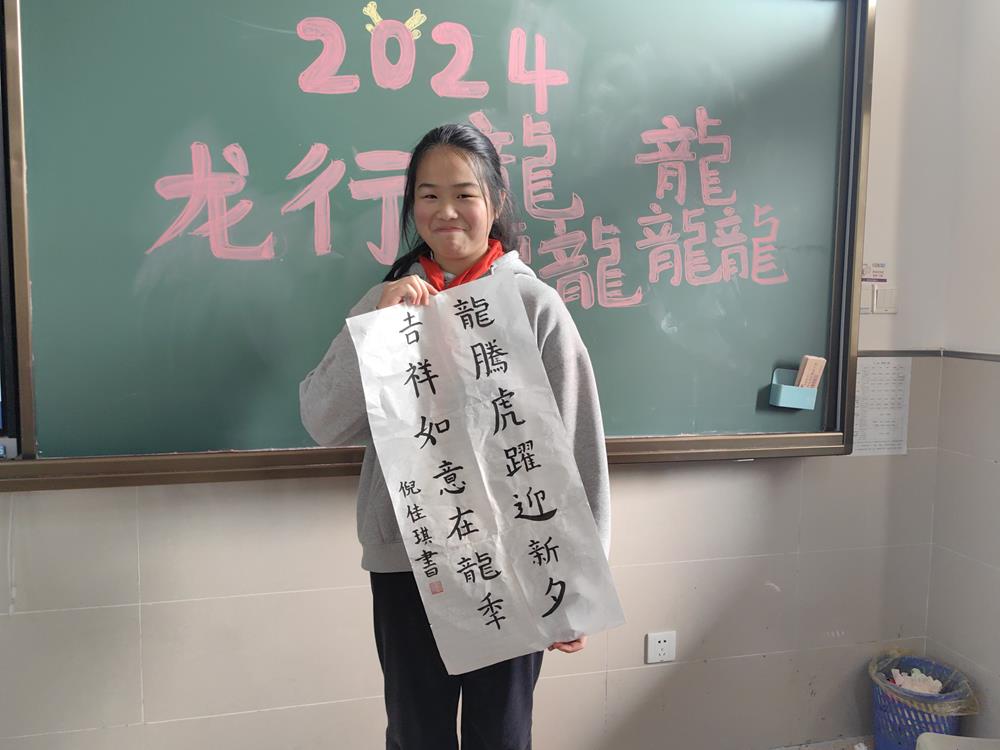 2024
龙行龘龘
龍騰虎躍迎新夕
吉祥如意在龍秊
倪佳琪書